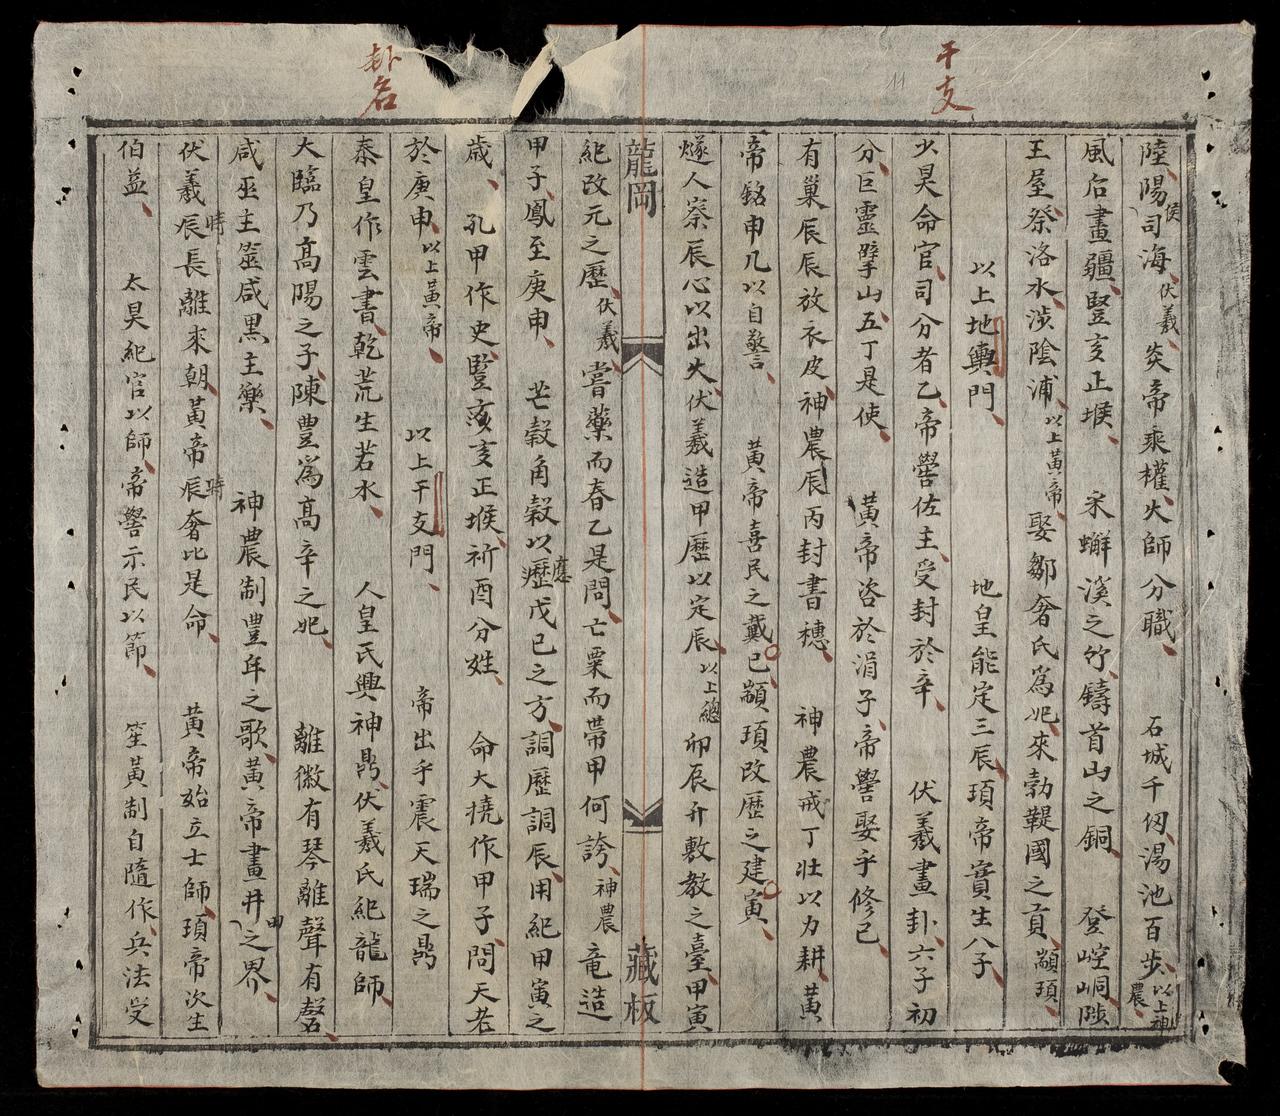 干支
陸陽侯司海伏羲炎帝乘權火師分職 石城千仞湯池百步以上神農
風后畫疆豎亥正堠 采嶰溪之竹鑄首山之銅 登崆峒陟
王屋祭洛水濒陰浦以上黃帝娶鄒奢氏為妃來勃鞮國之貢顓頊
以上地輿門 地皇能定三辰頊帝實生八子
少昊命官司分者乙帝嚳佐主受封於辛 伏羲畫卦六子初
分巨靈擘山五丁是使 黃帝咨於涓子帝嚳娶乎修己
有巢辰辰放衣皮神農辰丙封書穗 神農戒丁壯以力耕黃
帝銘申几以自警 黃帝喜民之戴己顓頊改歷之建寅
燧人察辰心以出火伏羲造甲歷以定辰以上總卯辰升敷教之臺甲寅
龍岡 藏板
紀改元之歷伏羲嘗藥而春乙是問亡粟而帶甲何誇神農竜造
甲子鳳至庚申 芒穀角穀以應歷戊己之方詞歷詞辰用紀甲寅之
歲 孔甲作史豎亥亥正堠祈酉分姓 命大撓作甲子問天老
於庚申以上黃帝 以上干支門 帝出乎震天瑞之鼎
卦名
泰皇作雲書乾荒生若水 人皇氏興神鼎伏羲氏紀龍師
大臨乃高陽之子陳豐為高辛之妃 離徽有琴離聲有磬
咸巫主筮咸黑主樂 神農制豐年之歌黃帝畫井田之界
伏羲辰時長離來朝黃帝辰時奢比是命 黃帝始立士師頊帝次生
伯益 太昊紀官以師帝嚳示民以節 笙黃制自隨作兵法受